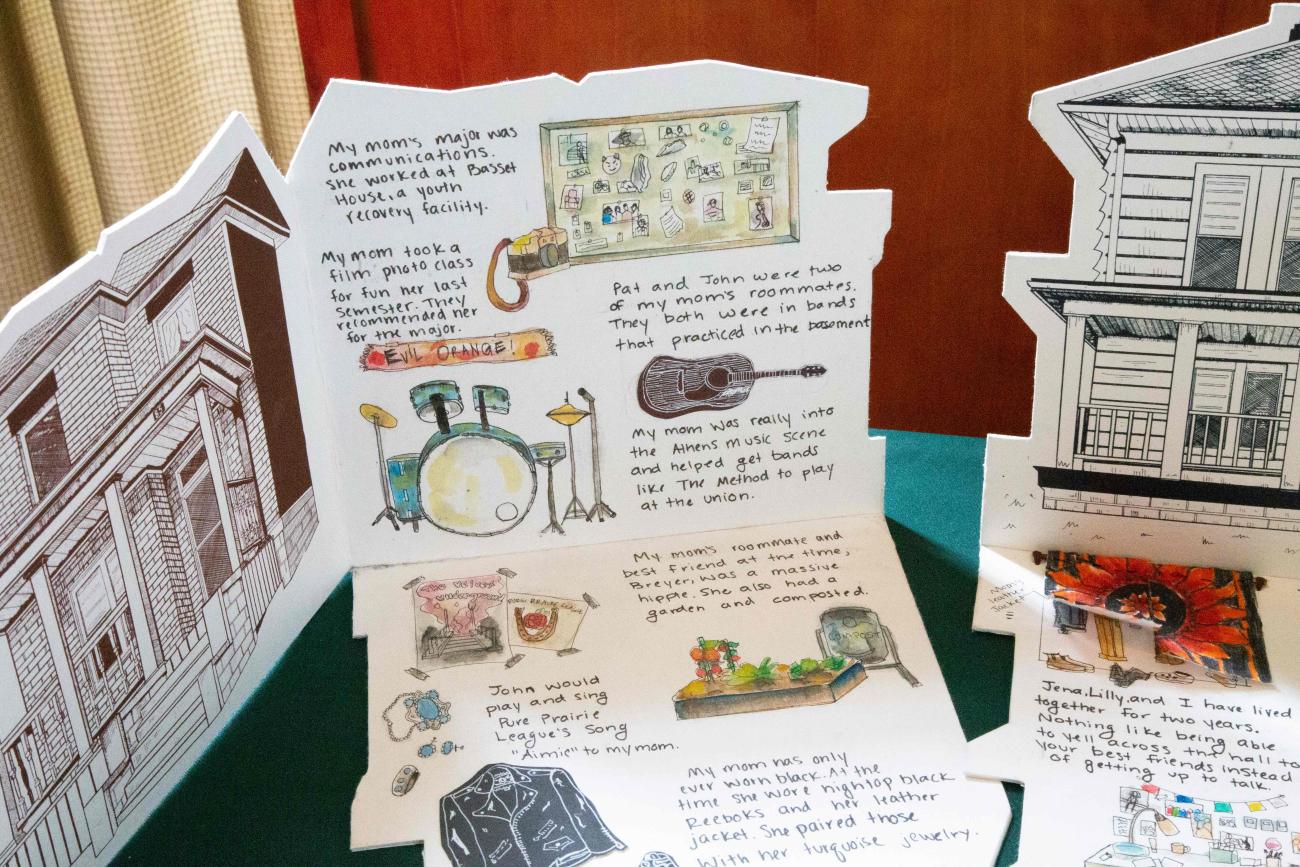 My mom's major was
communications.
She worked at Basset
House, a youth
recovery facility.
My mom took a
film photo class
for fun her last
semester. They
recommended her
for the major.
EVIL ORANGE!
Pat and John were two
of my mom's roommates.
They both were in bands
that practiced in the basement
My mom was really into
the Athens music scene
and helped get bands
like The Method to play
at the Union.
My mom's roommate and
best friend at the time,
Breyer, was a massive
hippie. She also had a
garden and composted.
COMPOST
John would
play and sing
Pure Prairie
League's song
"Aimie" to my mom.
My mom has only
ever worn black. At the
time she wore hightop black
Reeboks and her leather
jacket. She paired those
with her turquoise jewelry.
Mom's
leather
Jacket
Jena, Lilly, and I have lived
together for two years.
Nothing like being able
to yell across the hall to
your best friends instead
of getting up to talk.